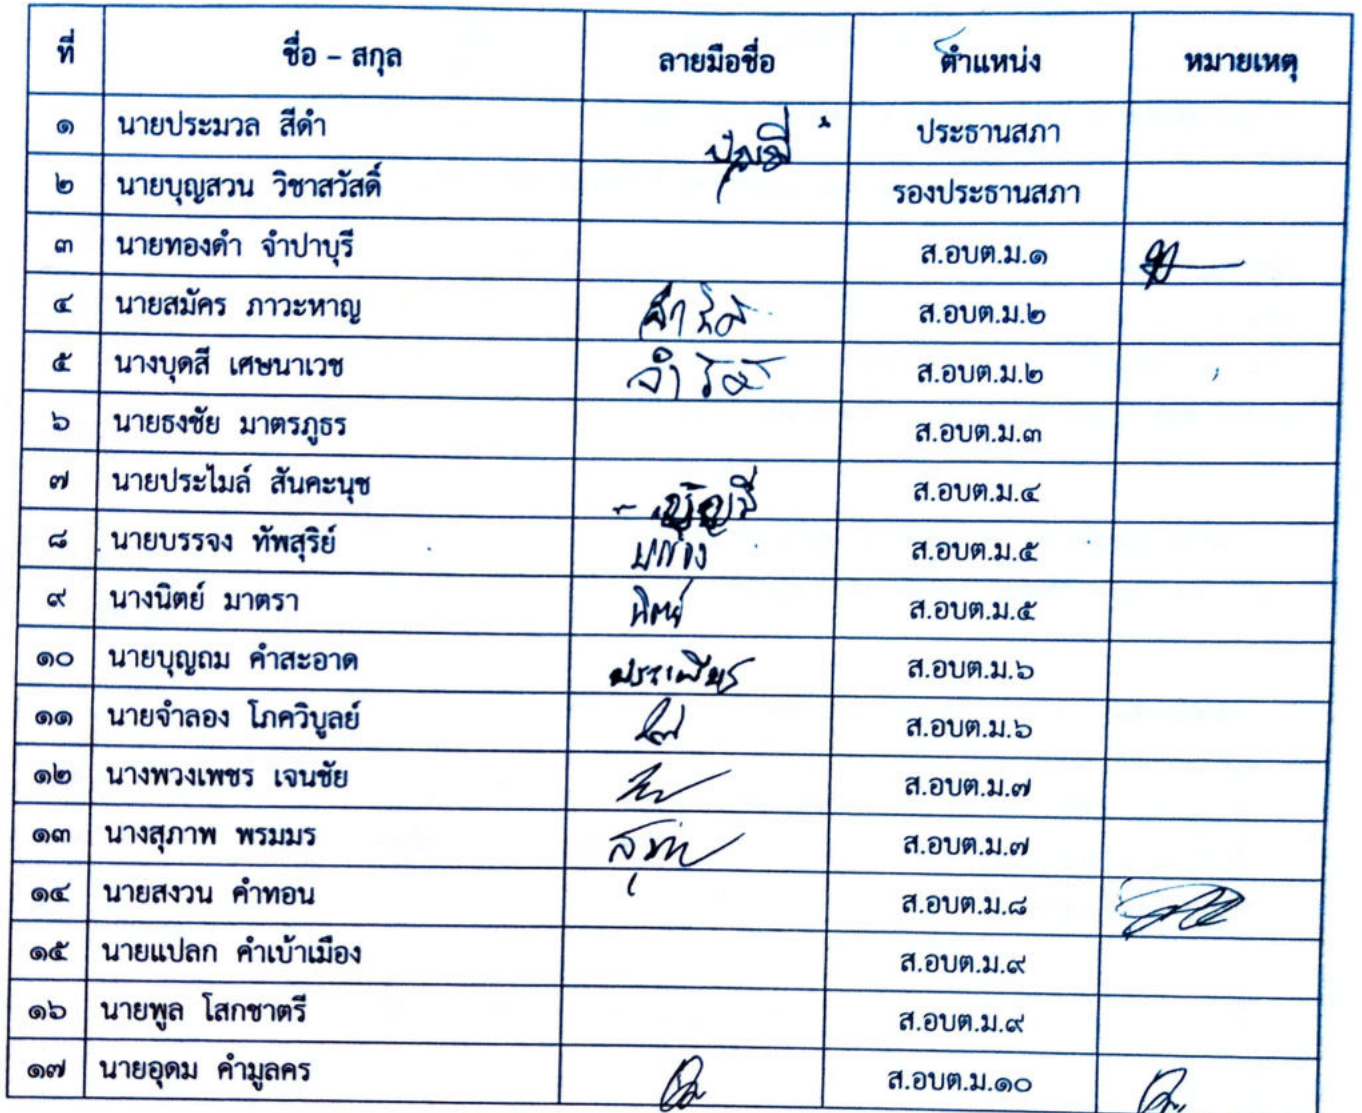 ที่ ชื่อ – สกุล ลายมือชื่อ ตำแหน่ง หมายเหตุ
๑ นายประมวล สีดำ ประธานสภา
๒ นายบุญสวน วิชาสวัสดิ์ รองประธานสภา
๓ นายทองดำ จำปาบุรี ส.อบต.ม.๑
๔ นายสมัคร ภาวะหาญ ส.อบต.ม.๒
๕ นางบุดสี เศษนาเวช ส.อบต.ม.๒
๖ นายธงชัย มาตรภูธร ส.อบต.ม.๓
๗ นายประไมล์ สันคะนุช ส.อบต.ม.๔
๘ นายบรรจง ทัพสุริย์ ส.อบต.ม.๕
๙ นางนิตย์ มาตรา นิตย์ ส.อบต.ม.๕
๑๐ นายบุญถม คำสะอาด ส.อบต.ม.๖
๑๑ นายจำลอง โภควิบูลย์ ส.อบต.ม.๖
๑๒ นางพวงเพชร เจนชัย ส.อบต.ม.๗
๑๓ นางสุภาพ พรมมร ส.อบต.ม.๗
๑๔ นายสงวน คำทอน ส.อบต.ม.๘
๑๕ นายแปลก คำเบ้าเมือง ส.อบต.ม.๙
๑๖ นายพูล โสกชาตรี ส.อบต.ม.๙
๑๗ นายอุดม คำมูลคร ส.อบต.ม.๑๐